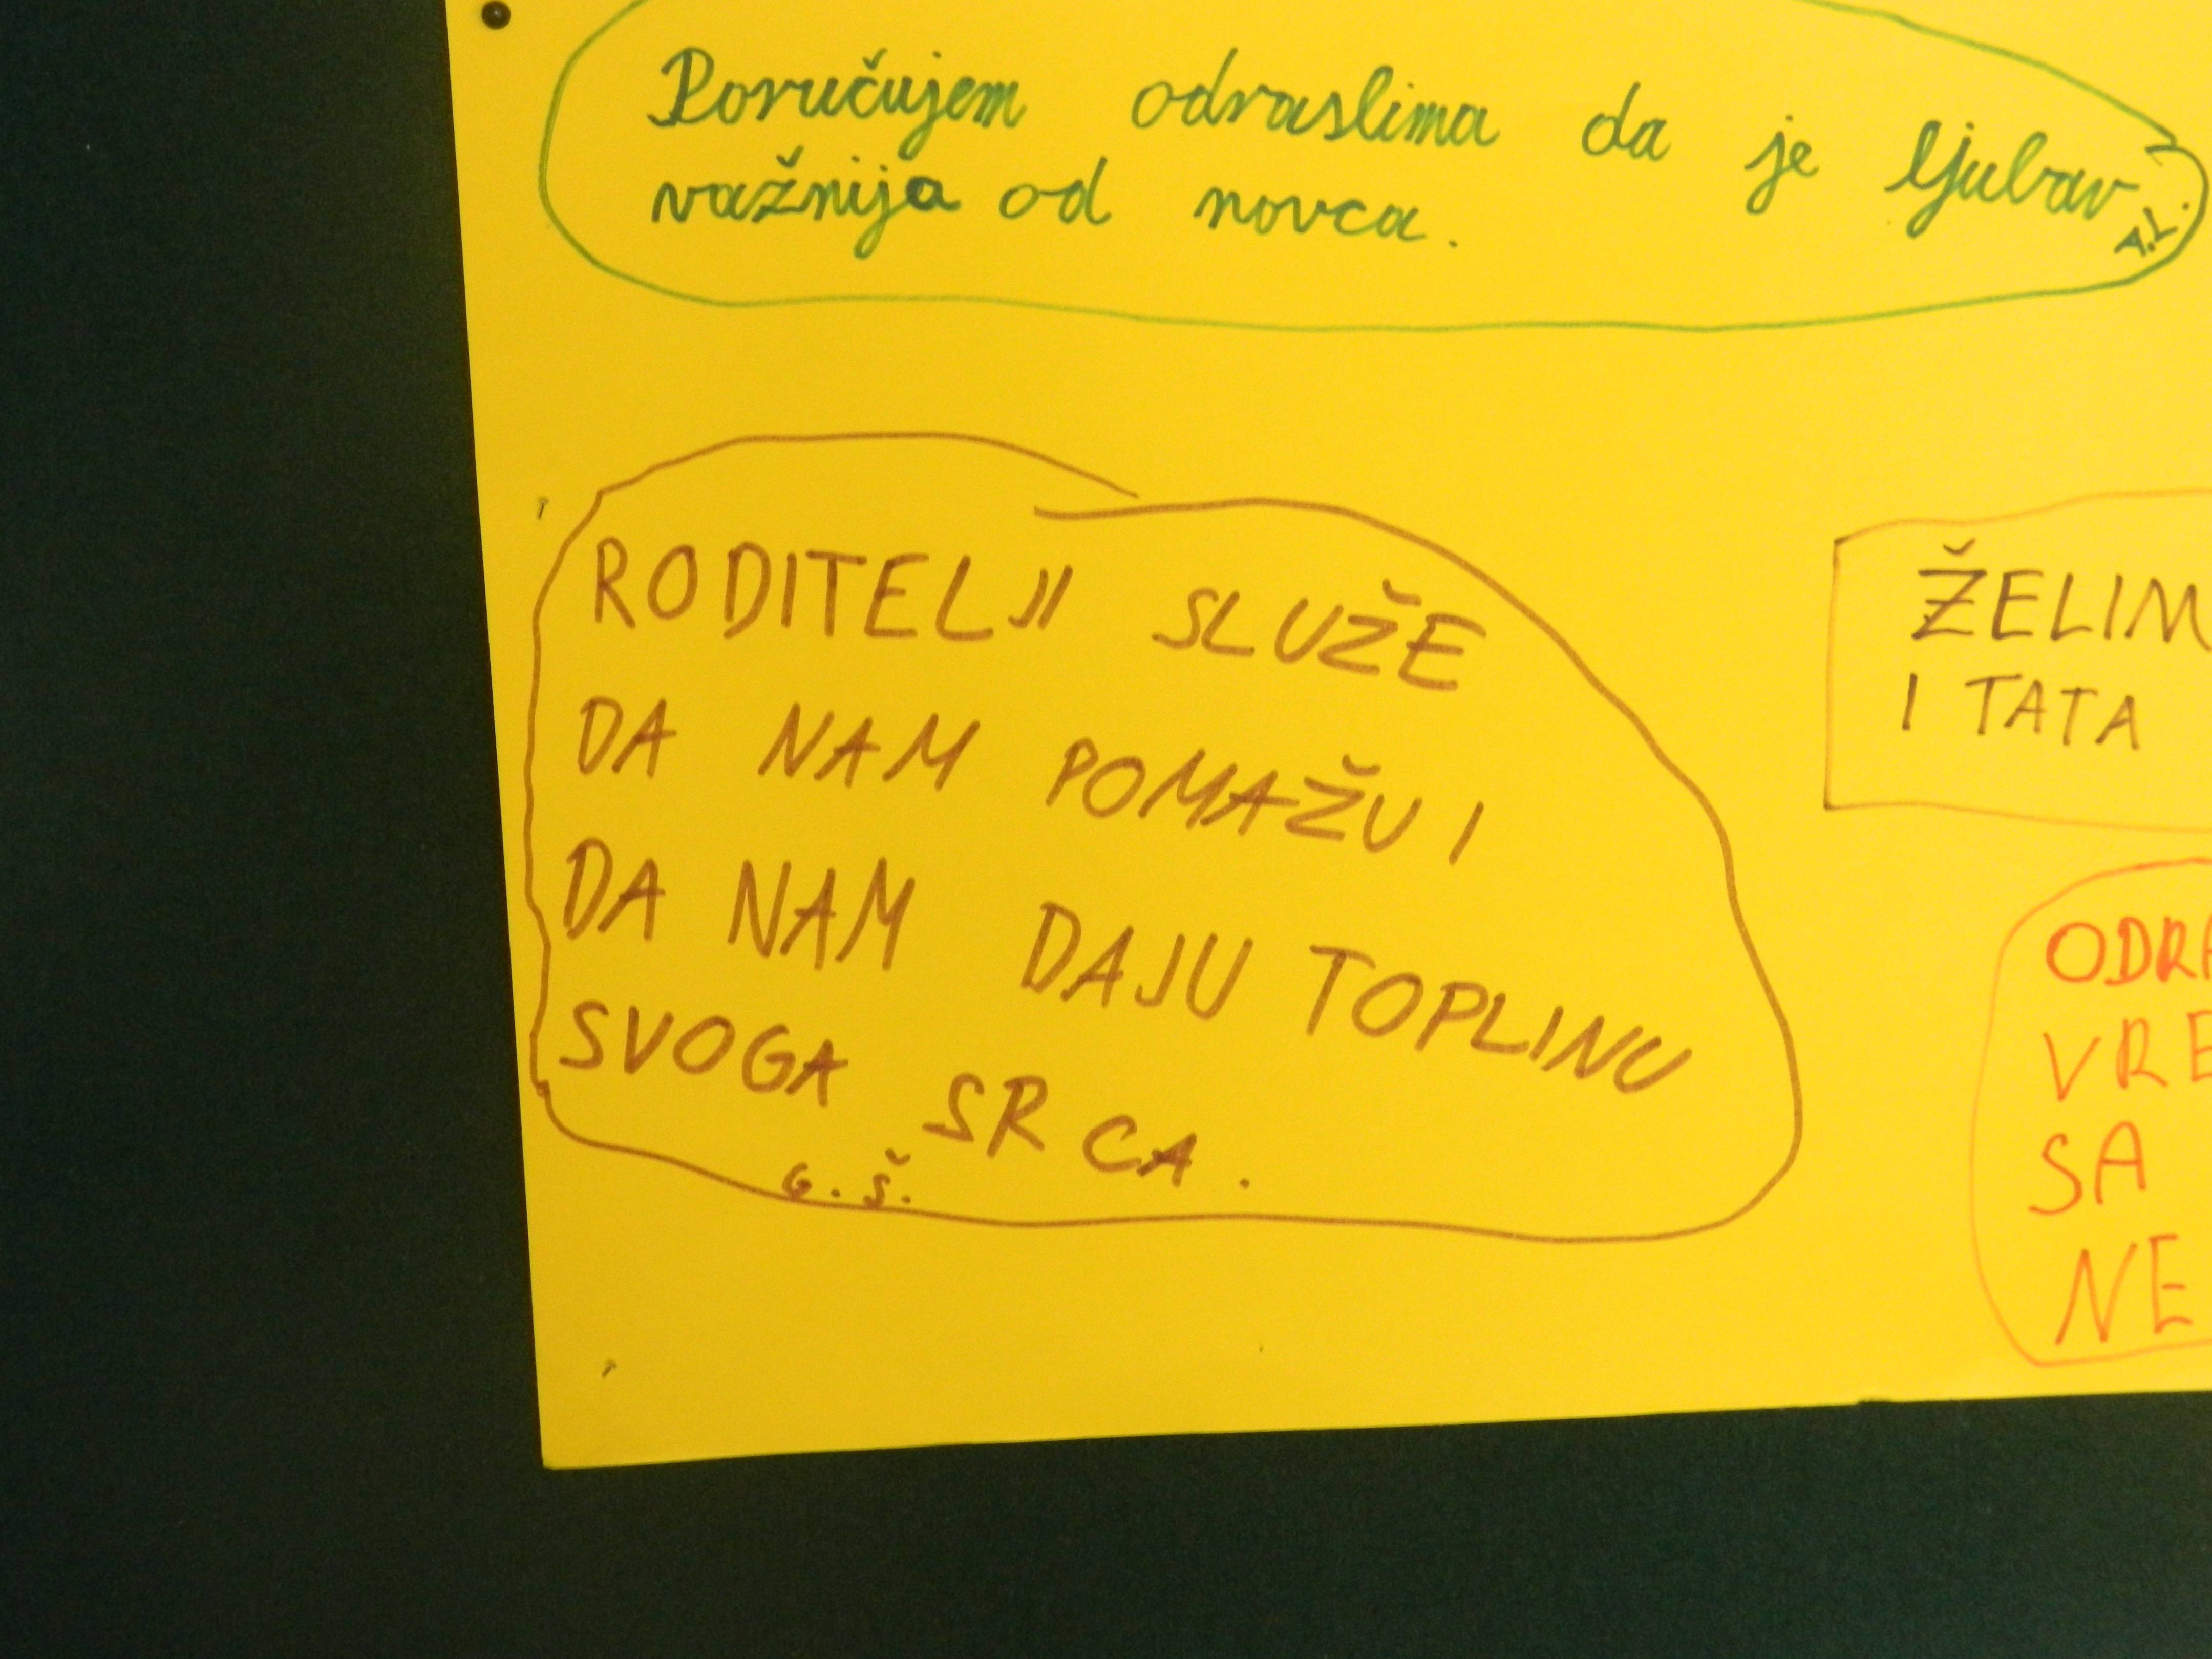 Poručujem odraslima da je ljubav
važnija od novca.
A.L.
RODITELJI SLUŽE
DA NAM POMAŽU I
DA NAM DAJU TOPLINU
SVOGA SRCA.
G.Š.
ŽELIM
I TATA
ODRA
VRE
SA
NE